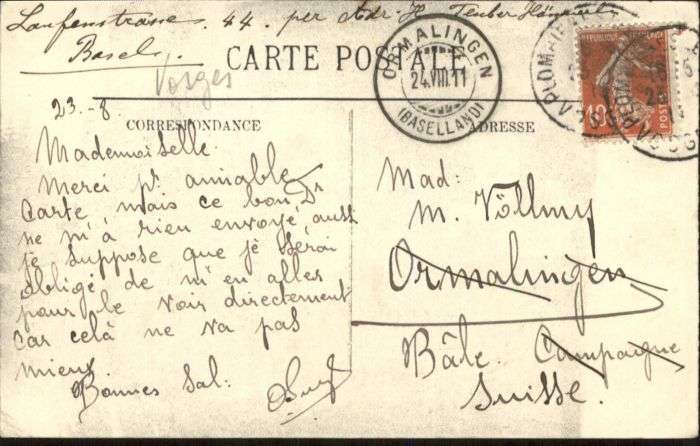 Laufenstrasse 44. per Adr. H. Teuber
Basel.
CARTE POSTALE
Vosges
ORMALINGEN
24.VIII.11
(BASELLAND)
10
POSTES
23.-8
CORRESPONDANCE
ADRESSE
Mademoiselle.
Merci pr amiable
Carte, mais ce bon Dr
ne m'à rien envoyé, aussi
je suppose que je serai
obligé de m'en aller
pour le voir directement
car celà ne va pas
mieux.
Bonnes Sal:
Mad:
M. Völlmy
Ormalingen
Bâle. Campagne
Suisse.